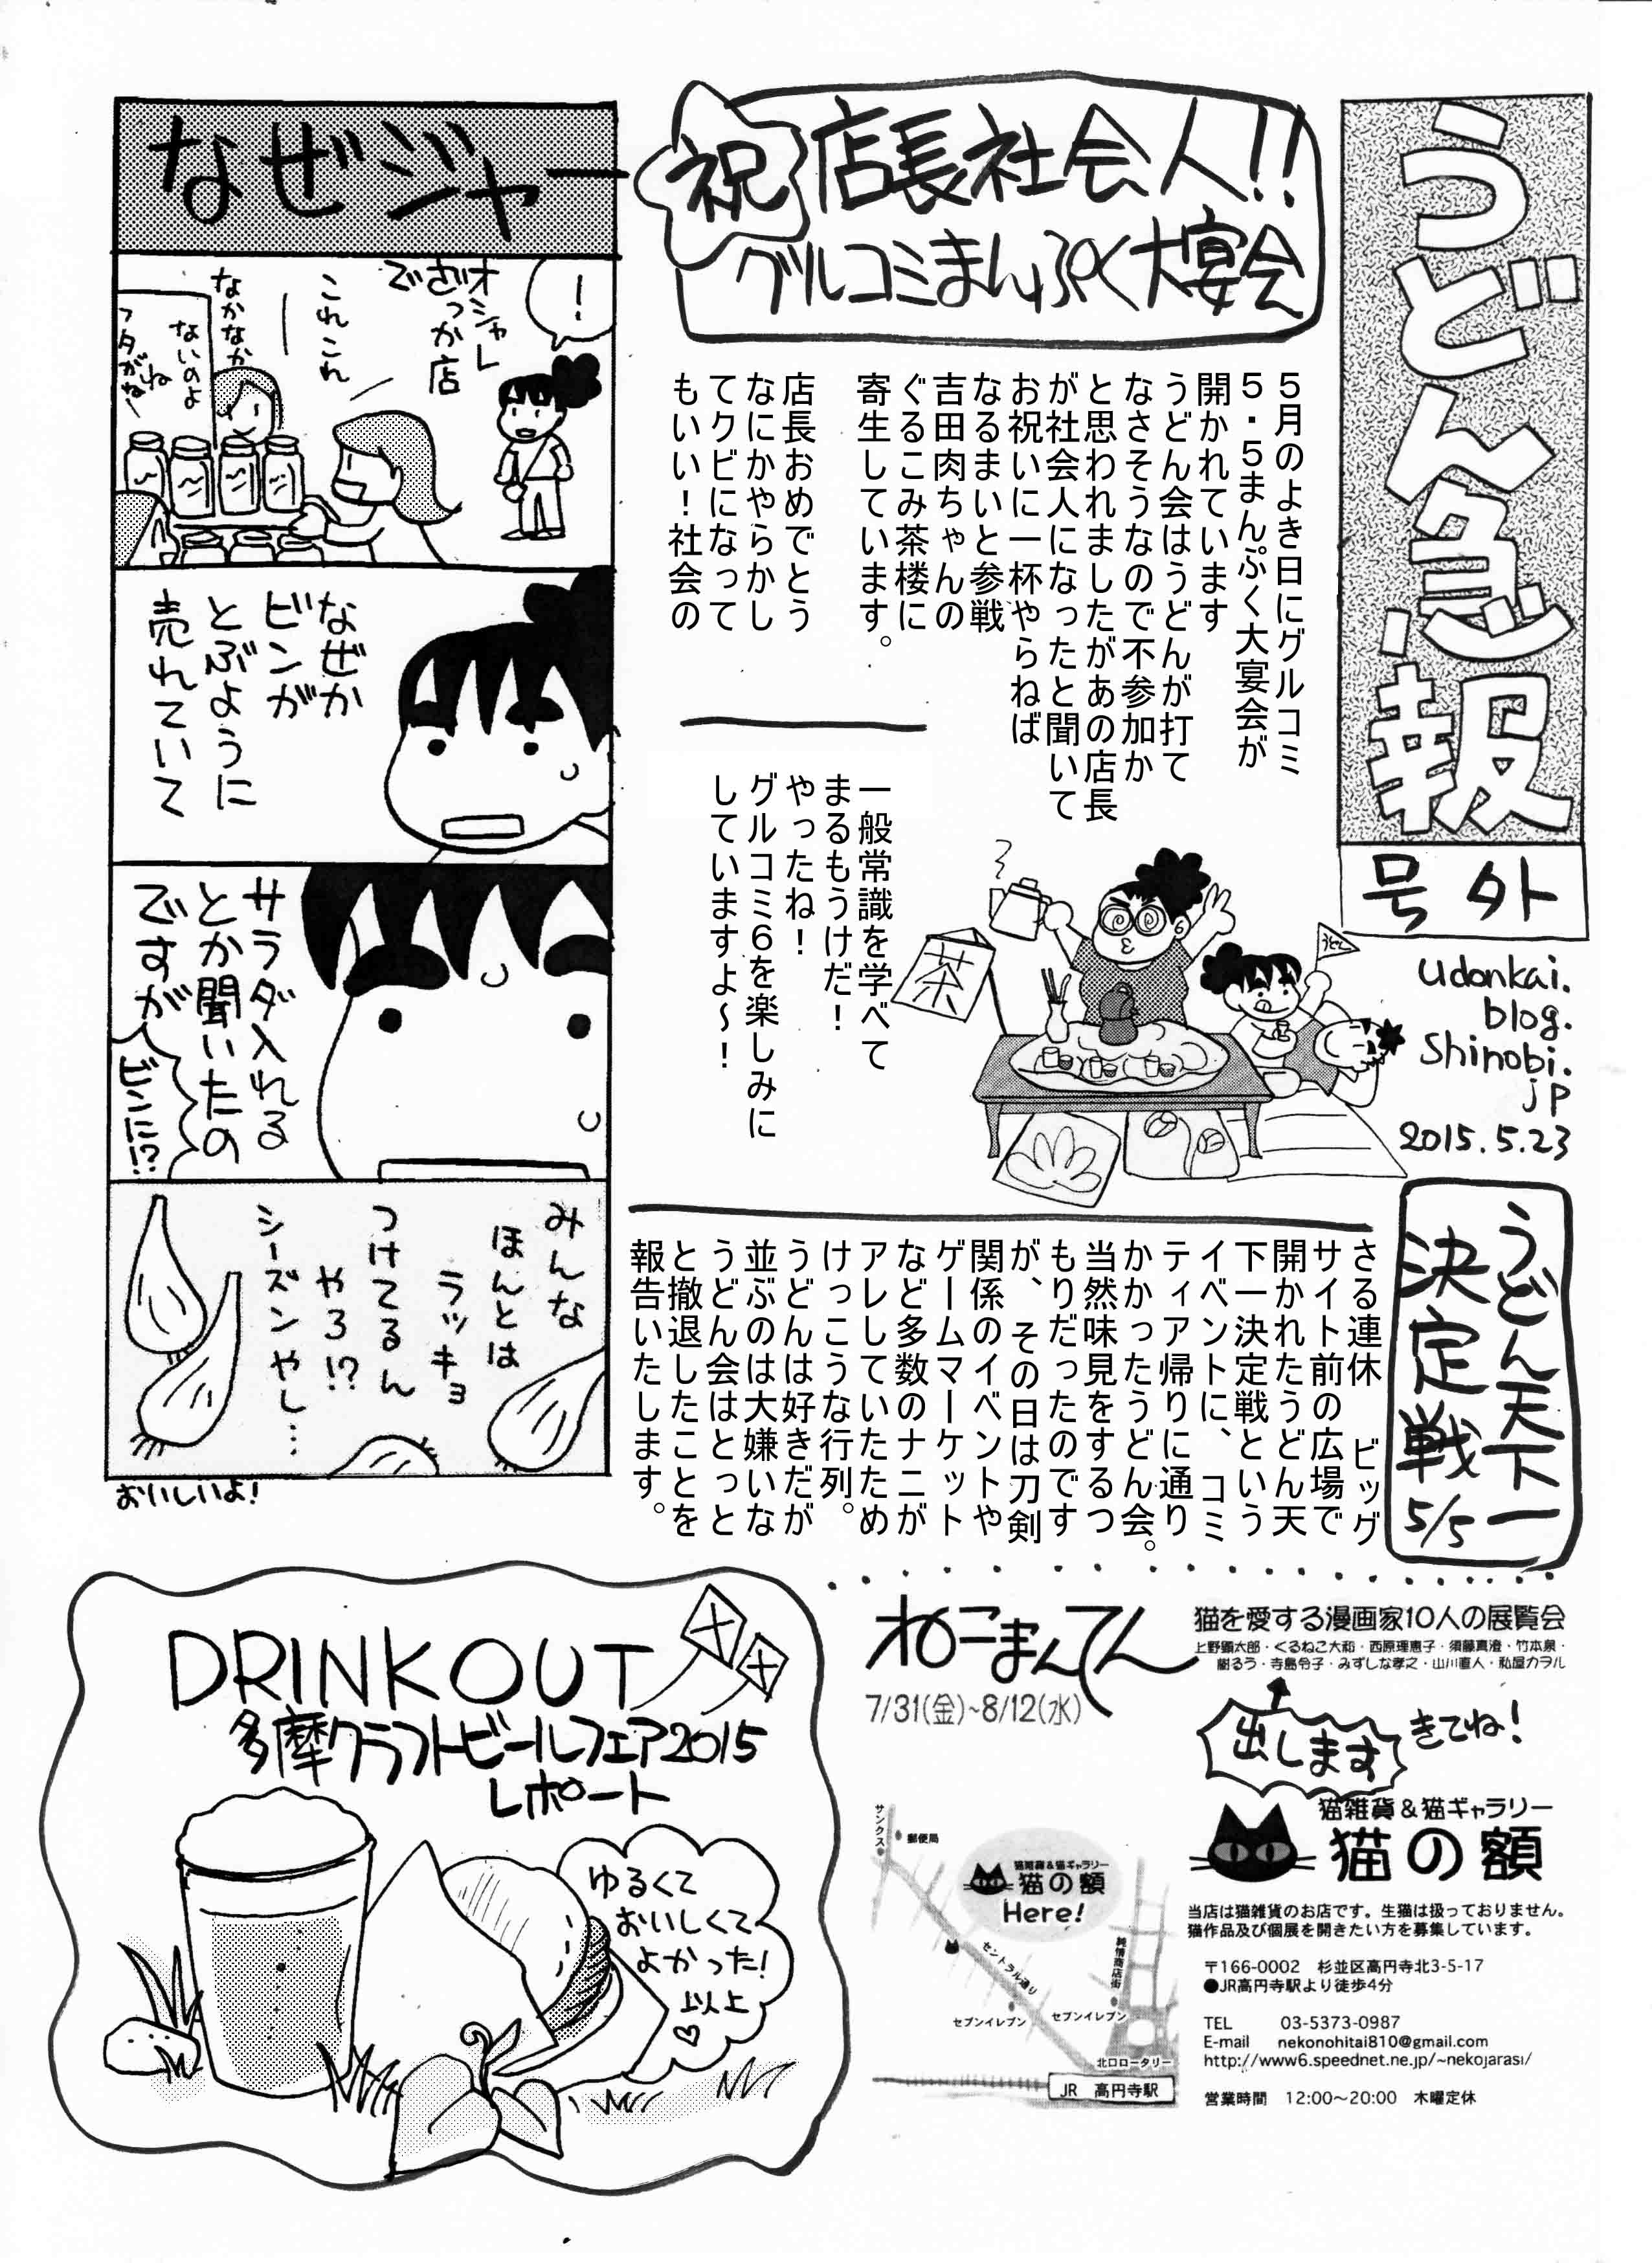 うどん急報
号外
udonkai.
blog.
shinobi.
jp
2015.5.23
祝
店長社会人!!
グルコミまんぷく大宴会
5月のよき日にグルコミ
5・5まんぷく大宴会が
開かれています
うどん会はうどんが打て
なさそうなので不参加か
と思われましたがあの店長
が社会人になったと聞いて
お祝いに一杯やらねば
なるまいと参戦
吉田肉ちゃんの
ぐるこみ茶楼に
寄生しています。
店長おめでとう
なにかやらかし
てクビになって
もいい!社会の
一般常識を学べて
まるもうけだ!
やったね!
グルコミ6を楽しみに
していますよ~!
茶
うどん
なぜジャー
!
オシャレ
ざっか店
で
これこれ
なかなか
ないのよ
ね
フタがね
なぜか
ビンが
とぶように
売れていて
サラダ入れる
とか聞いたの
ですが
ビンに!?
みんな
ほんとは
ラッキョ
つけてるん
やろ!?
シーズンやし…
おいしいよ!
うどん天下一
決定戦
5/5
さる連休 ビッグ
サイト前の広場で
開かれたうどん天
下一決定戦という
イベントに、コミ
ティア帰りに通り
かかったうどん会。
当然味見をするつ
もりだったのです
が、その日は刀剣
関係のイベントや
ゲームマーケット
など多数のナニが
アレしていたため
けっこうな行列。
うどんは好きだが
並ぶのは大嫌いな
うどん会はとっと
と撤退したことを
報告いたします。
DRINKOUT
多摩クラフトビールフェア2015
レポート
ゆるくて
おいしくて
よかった!
以上
♡
ねこまんてん
7/31(金)~8/12(水)
猫を愛する漫画家10人の展覧会
上野顕太郎・くるねこ大和・西原理恵子・須藤真澄・竹本泉・
樹るう・寺島令子・みずしな孝之・山川直人・私屋カヲル
出します
きてね!
猫雑貨&猫ギャラリー
猫の額
当店は猫雑貨のお店です。生猫は扱っておりません。
猫作品及び個展を開きたい方を募集しています。
〒166-0002 杉並区高円寺北3-5-17
●JR高円寺駅より徒歩4分
TEL 03-5373-0987
E-mail nekonohitai810@gmail.com
http://www6.speednet.ne.jp/~nekojarasi/
営業時間 12:00~20:00 木曜定休
サンクス
郵便局
猫雑貨&猫ギャラリー
猫の額
Here!
セントラル通り
純情商店街
セブンイレブン
セブンイレブン
北口ロータリー
JR 高円寺駅